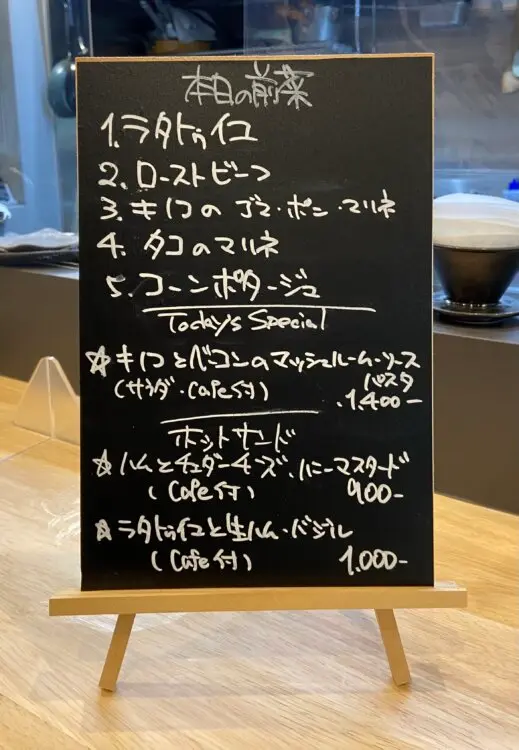 本日の前菜
1.ラタトゥイユ
2.ローストビーフ
3.キノコのゴマ・ポン・マリネ
4.タコのマリネ
5.コーンポタージュ
Today's Special
☆キノコとベーコンのマッシュルーム・ソース
パスタ
(サラダ・Cafe付) 1.400-
ホットサンド
☆ハムとチェダーチーズ、ハニーマスタード
(Cafe付) 900-
☆ラタトゥイユと生ハム・バジル
(Cafe付) 1.000-